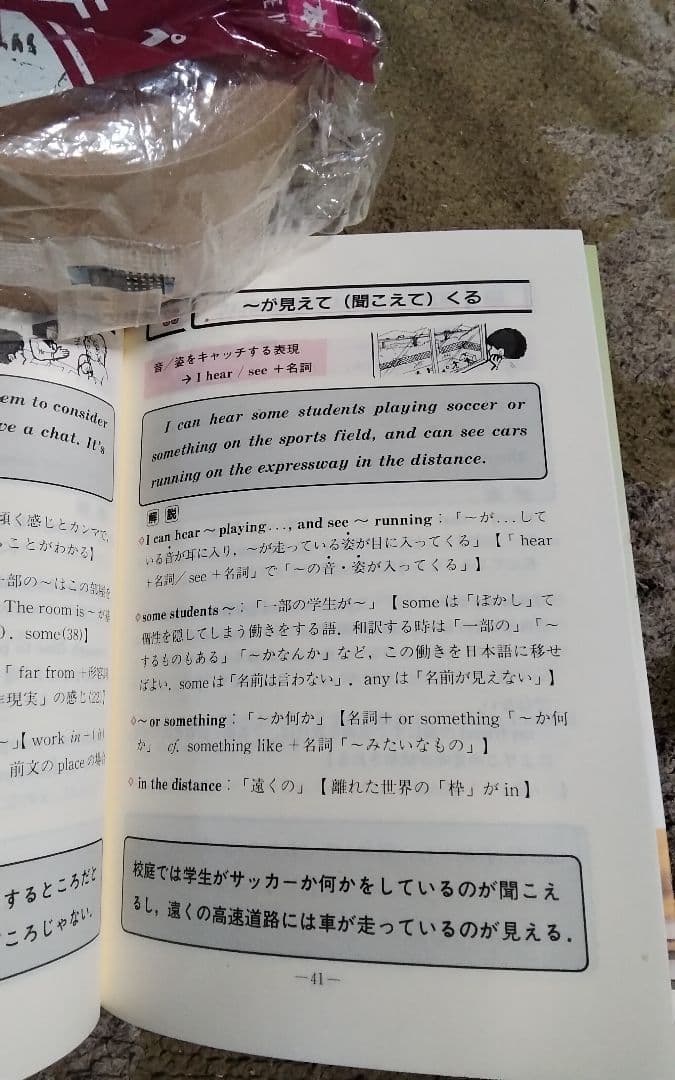 em to consider
ve a chat. It's
頃く感じとカンマで,
ることがわかる】
一部の～はこの部屋を
The room is～が
). some(38)】
「far from＋形容詞
非現実」の感じ(22)
～」【work in-1 (
前文のplaceの場合
するところだと
ころじゃない.
～が見えて（聞こえて）くる
音／姿をキャッチする表現
→ I hear / see ＋名詞
I can hear some students playing soccer or
something on the sports field, and can see cars
running on the expressway in the distance.
解説
◇I can hear ～ playing..., and see ～ running：「～が...して
いる音が耳に入り，～が走っている姿が目に入ってくる」【「hear
＋名詞／see ＋名詞」で「～の音・姿が入ってくる」】
◇some students ～：「一部の学生が～」【some は「ぼかし」て
個性を隠してしまう働きをする語．和訳する時は「一部の」「～
するものもある」「～かなんか」など，この働きを日本語に移せ
ばよい．some は「名前は言わない」．any は「名前が見えない」】
◇～or something：「～か何か」【名詞＋ or something「～か何
か」 cf. something like ＋名詞「～みたいなもの」】
◇in the distance：「遠くの」【離れた世界の「枠」が in】
校庭では学生がサッカーか何かをしているのが聞こえ
るし，遠くの高速道路には車が走っているのが見える．
―41―